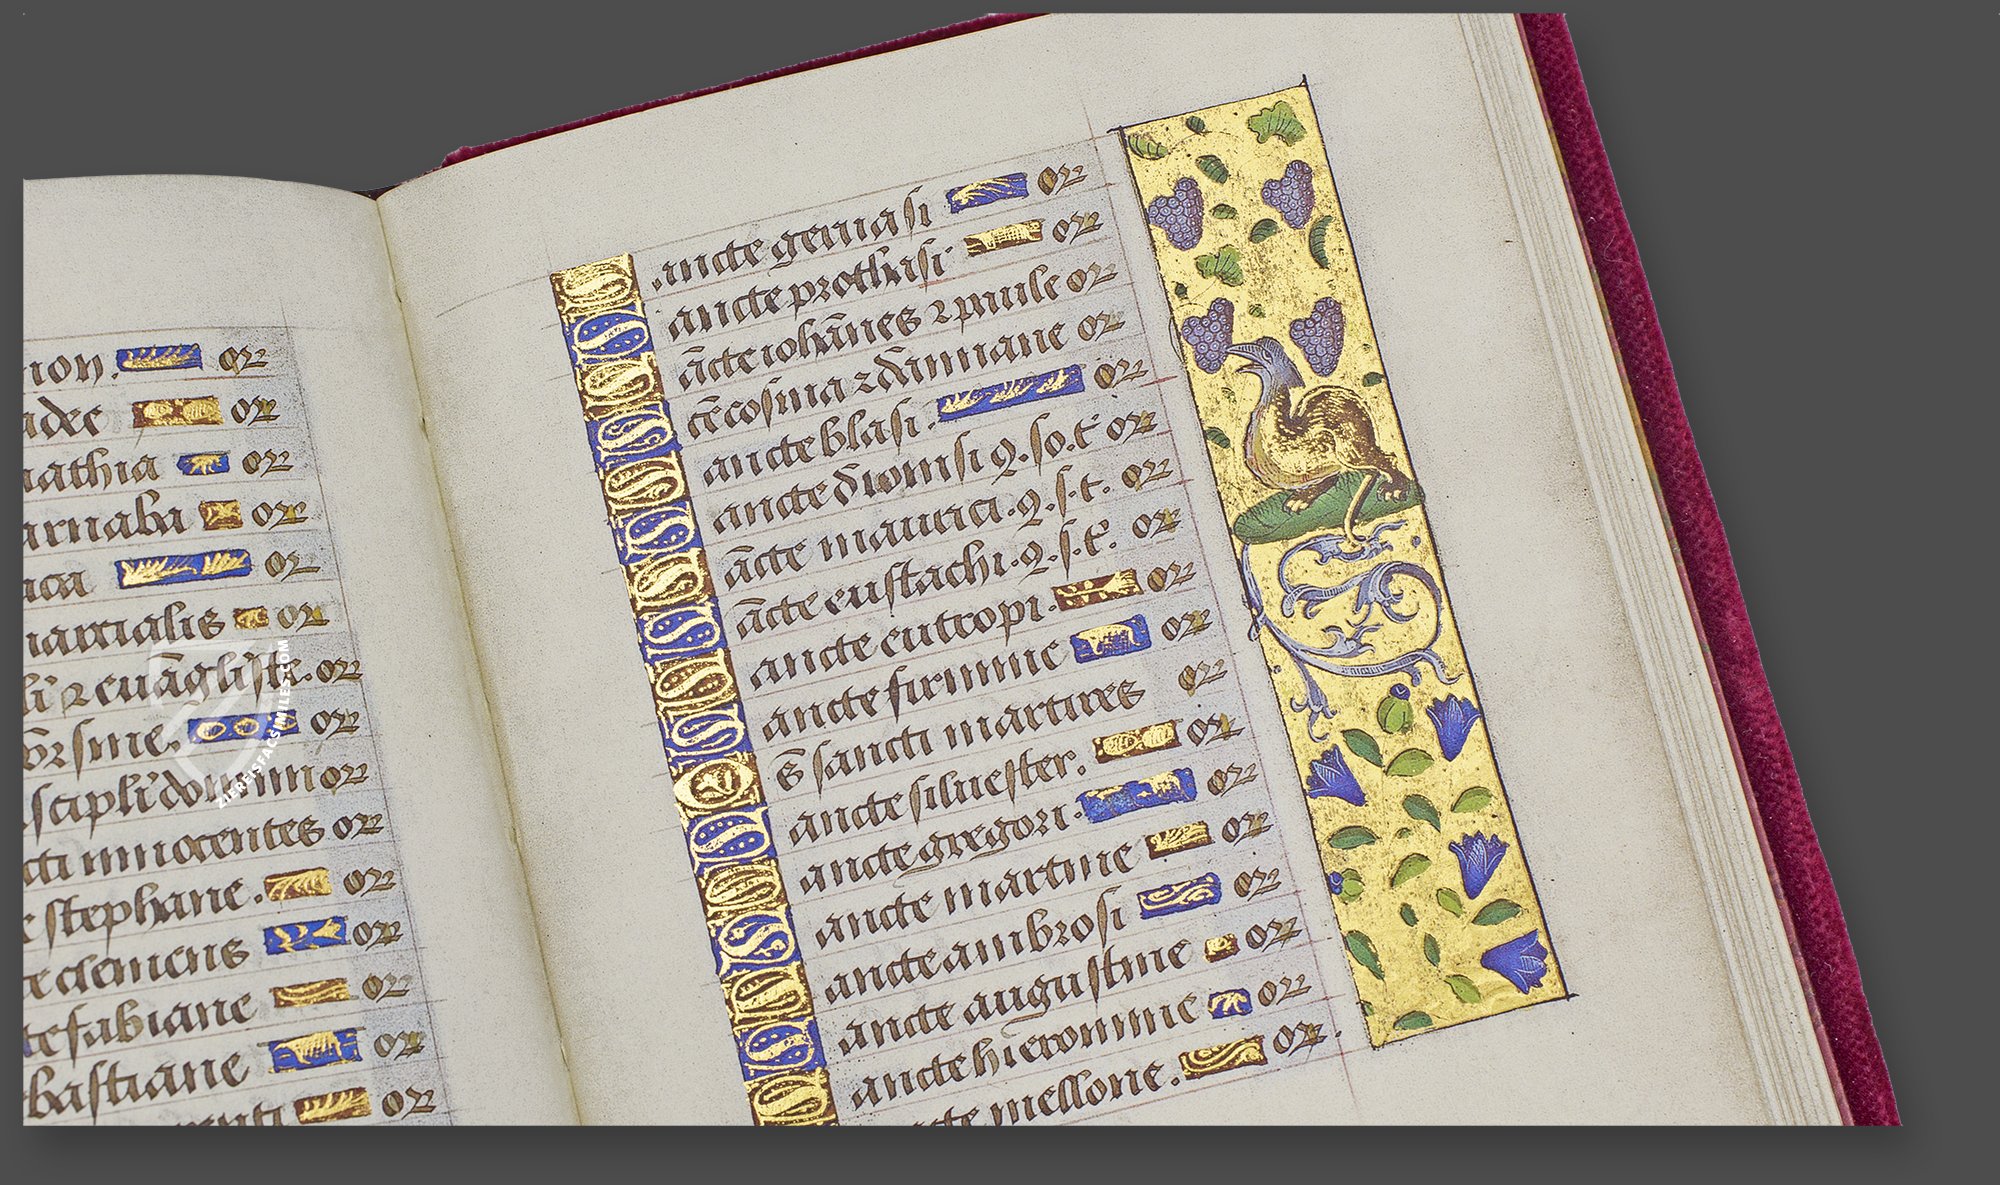 ion. or
adee or
mathia or
arnaba or
uca or
marcialis or
li ⁊ euāgliste. or
ōr̄sme. or
scipli domini or
cti innocentes or
e stephane. or
te clemens or
te fabiane or
bastiane or
centi or
Sancte geruasi or
Sancte prothasi or
Sācte iohānes ⁊ paule or
Scē cosma ⁊ damiane or
Sancte blasi. or
Sancte dionisi q. so. t̄ or
Sācte maurici. q. s. t. or
Sācte eustachi. q. s. t̄. or
Sancte eutropi. or
Sancte firmine or
Omēs sancti martires or
Sancte siluester. or
Sancte gregori. or
Sancte martine or
Sancte ambrosi or
Sancte augustine or
Sancte hieronime or
Sancte mellone. or.
ZIEREISFACSIMILES.COM